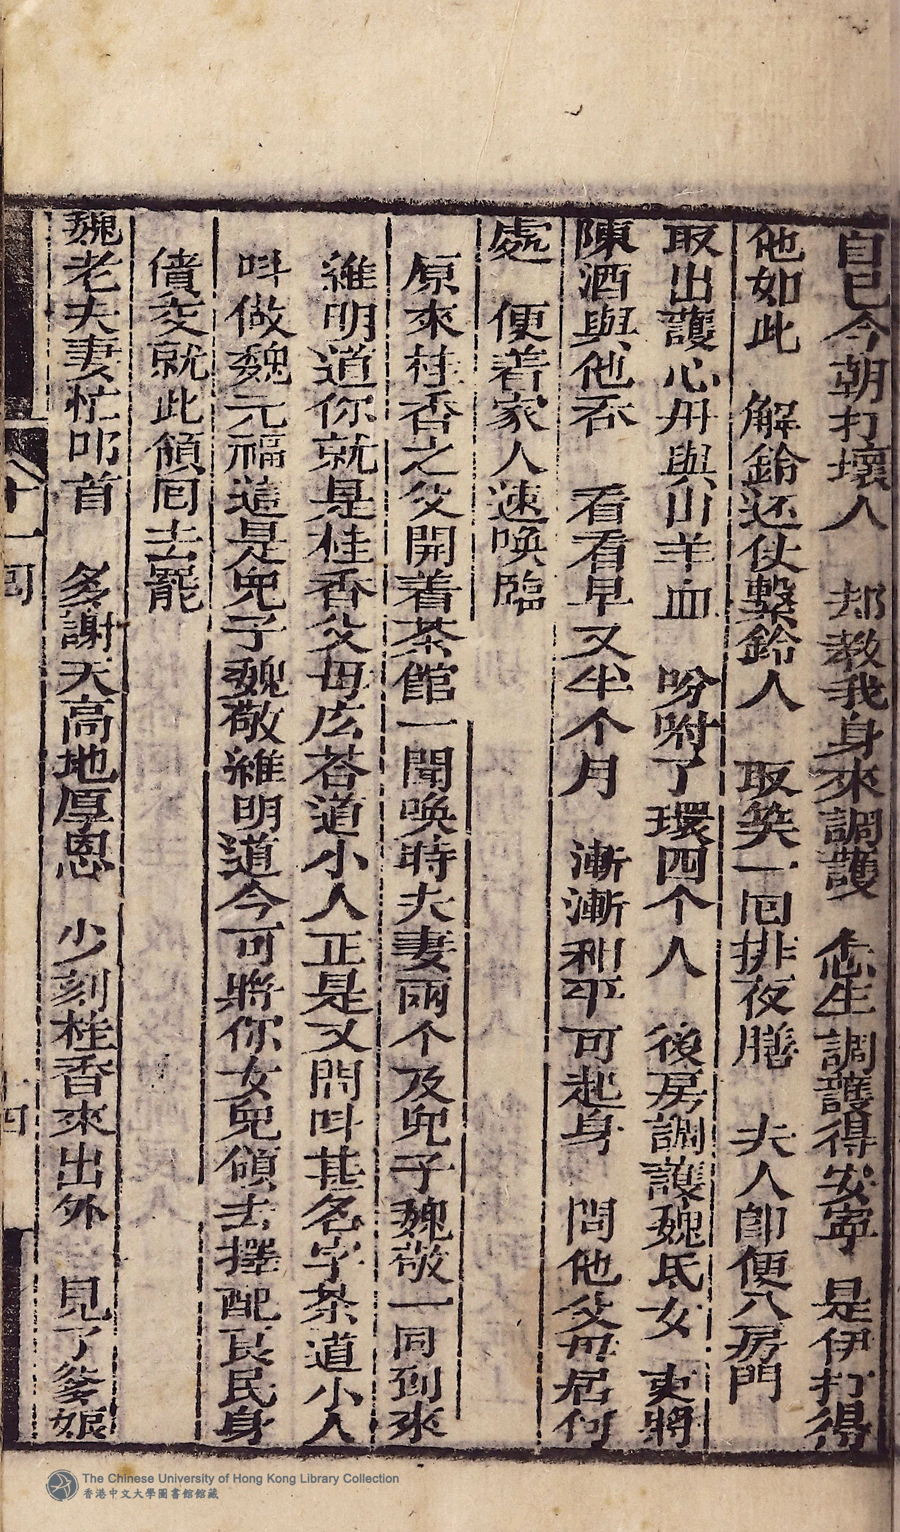 自己今朝打壞人　却教我身來調護　怎生調護得安寧　是伊打得
他如此　解鈴还仗繫鈴人　取笑一囘排夜膳　夫人卽便入房門
取出護心丹與山羊血　吩咐了環四个人　後房調護魏氏女　更將
陳酒與他吞　看看早又半个月　漸漸和平可起身　問他父母居何
處　便着家人速喚臨
原來桂香之父開着茶館一聞喚時夫妻兩个及兒子魏敬一同到來
維明道你就是桂香父母庅荅道小人正是又問呌甚名字荅道小人
呌做魏元福這是兒子魏敬維明道今可將你女兒領去擇配良民身
價交就此領囘去罷
魏老夫妻忙叩首　多謝天高地厚恩　少刻桂香來出外　見了爹娘
十一囘
四
The Chinese University of Hong Kong Library Collection
香港中文大學圖書館館藏